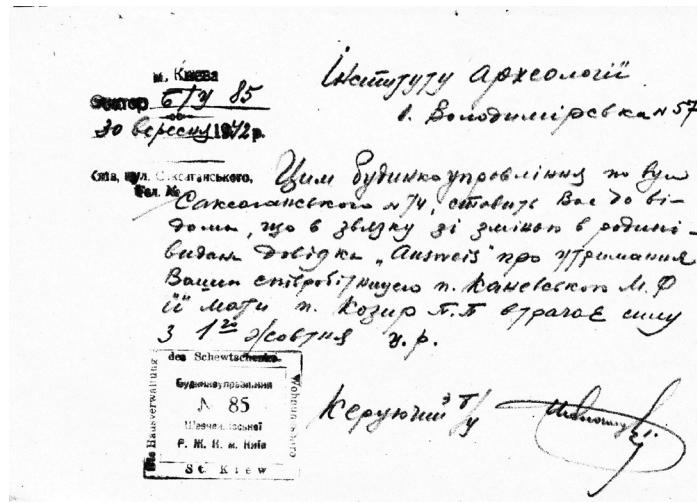 м. Києва
Сектор Б/У 85
30 вересня 1942 р.
Київ, вул. Саксаганського,
Тел. №
Інституту Археології
в. Володимірська № 57
Цим будинкоуправління по вул
Саксаганського № 74, ставить Вас до ві-
дома, що в звязку зі зміною в родині-
видана довідка „Ausweis" про утримання
Вашим співробітницею п. Каневською М. Ф
її мати п. Козир П.П втрачає силу
з 1го Жовтня ц.р.
Керуючий Б/У
Die Hausverwaltung
des Schewtschenko-
Wohnungsbüro
Будинкоуправління
№ 85
Шевченківської
Р. Ж. К. м. Київ
St. Kiew